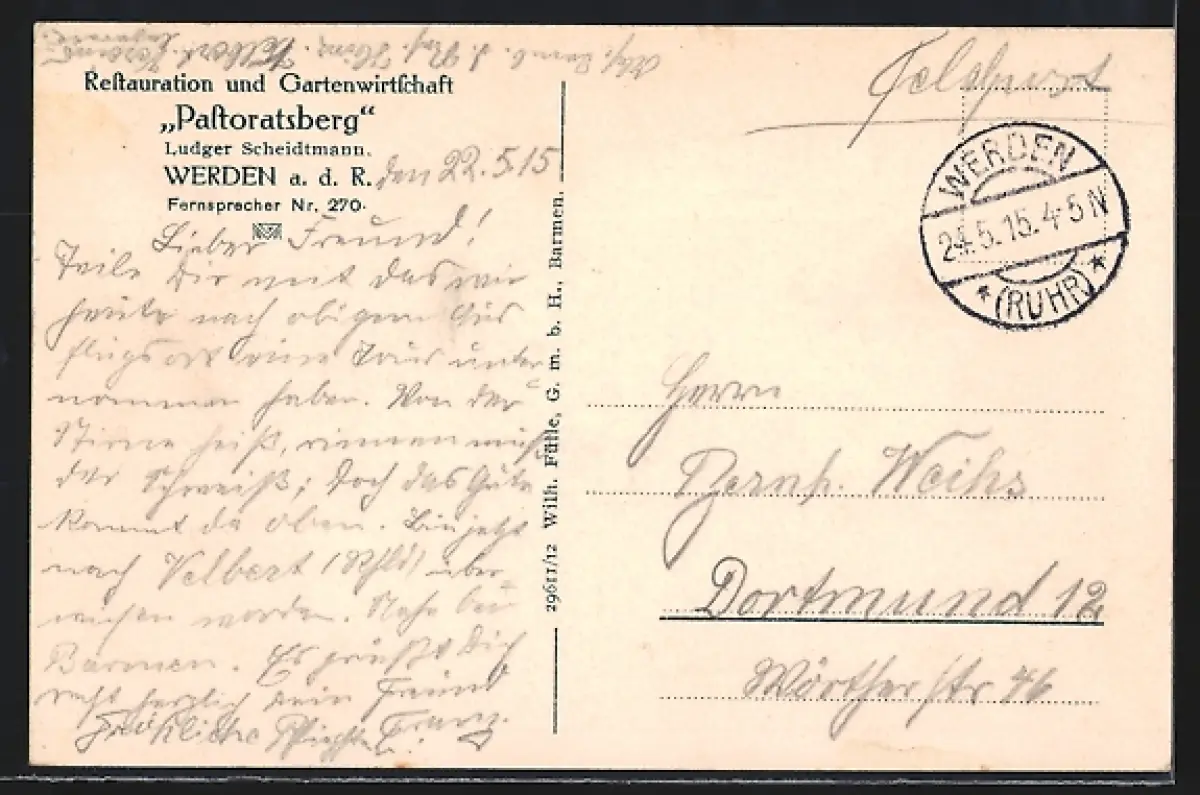 Restauration und Gartenwirtschaft
„Pastoratsberg“
Ludger Scheidtmann.
WERDEN a. d. R.
Fernsprecher Nr. 270.
den 22.5.15
Lieber Freund!
Teile Dir mit das wir
heute nach obigem Aus
flugsort eine Tour unter
nommen haben. Von der
Stirne heiß, rinnen muß
der Schweiß; Doch das Gute
kommt da oben. Bin jetzt
nach Velbert (Rhld) über-
wiesen worden. Nahe bei
Barmen. Es grüßt Dich
recht herzlich dein Freund
Franz.
Fröhliche Pfingsten!
29611/12 Wilh. Fülle, G. m. b. H., Barmen.
Feldpost
WERDEN
24.5.15.4-5N
* (RUHR) *
Herrn
Bernh. Weihs
Dortmund 12
Wörther str 46